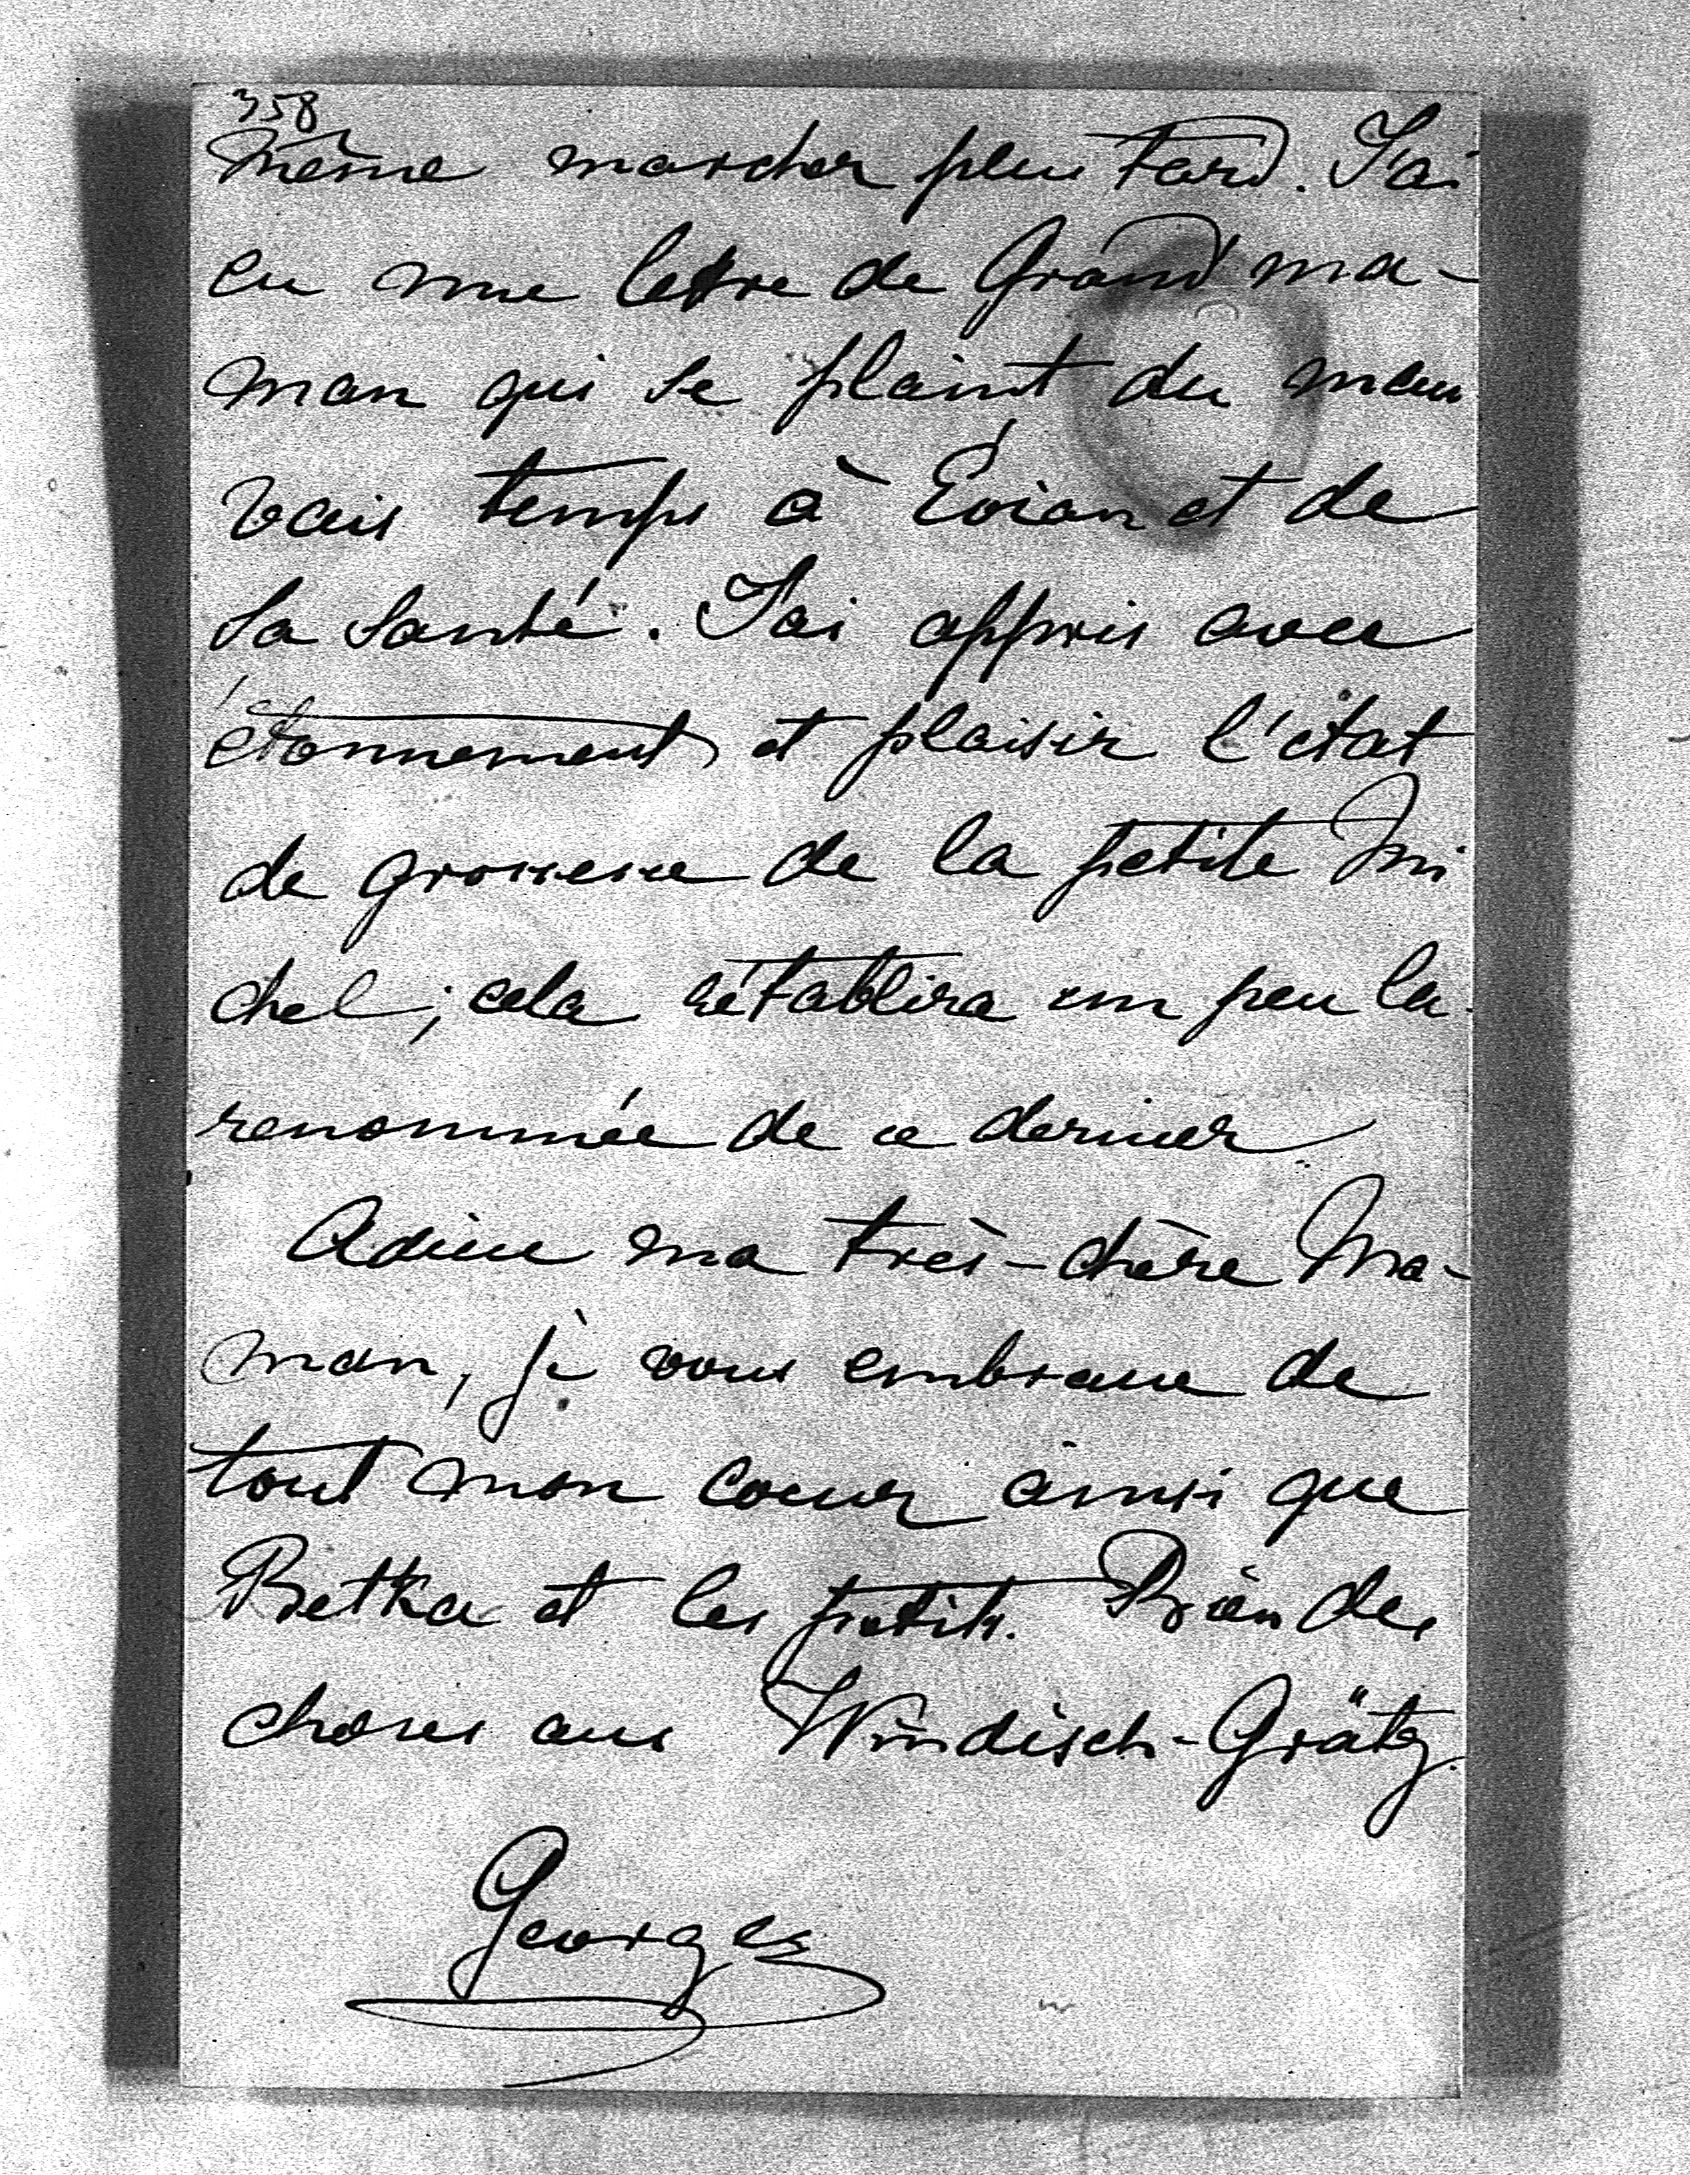 358
même marcher plus tard. J'ai
eu une lettre de Grand ma-
man qui se plaint du mau
vais temps à Évian et de
sa santé. J'ai appris avec
étonnement et plaisir l'état
de grossesse de la petite Mi
chel; cela rétablira un peu la
renommée de ce dernier
Adieu ma très-chère Ma-
man, je vous embrasse de
tout mon coeur ainsi que
Betka et les petits. Bien des
choses aux Windisch-Grätz.
Georges